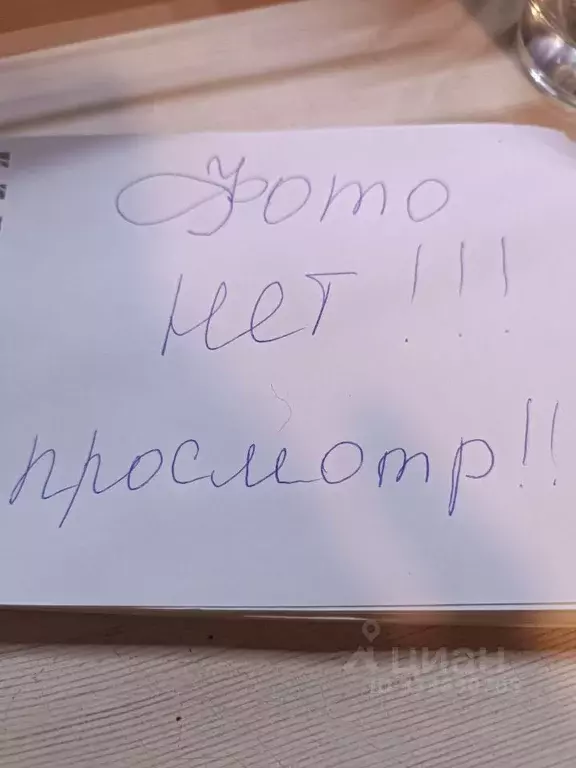 Фото
нет!!!
просмотр!!
циан